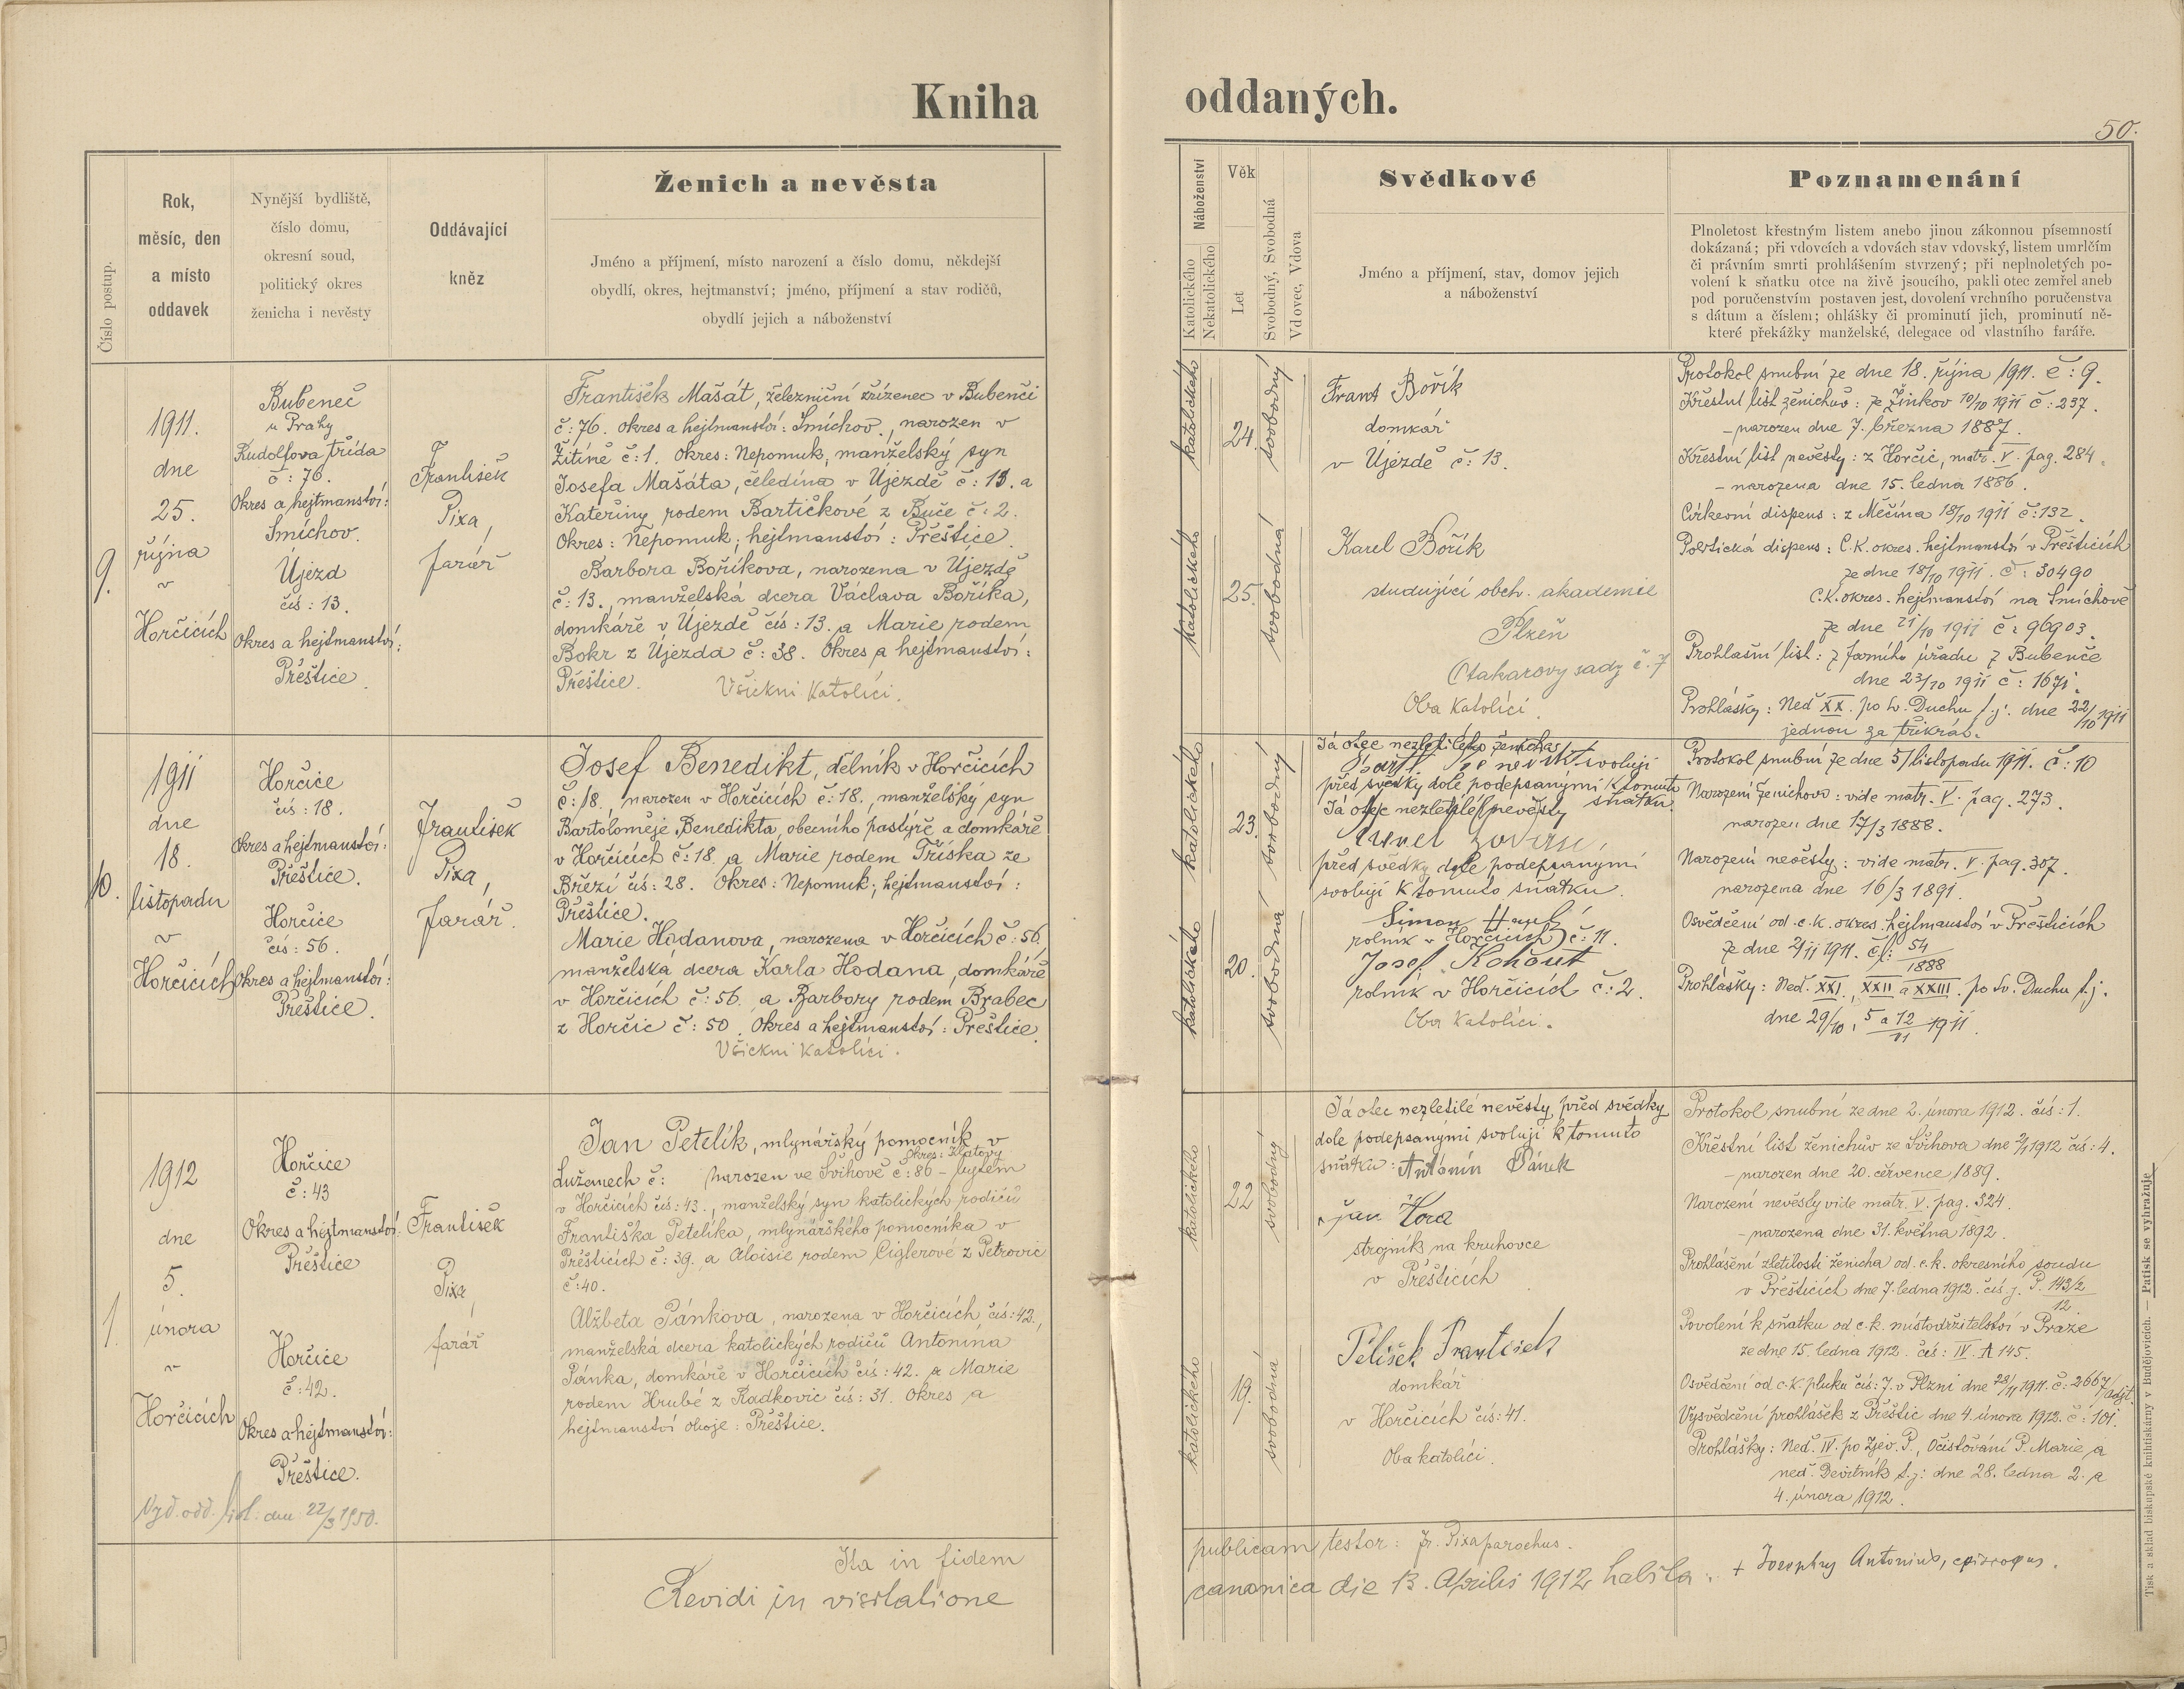 Kniha oddaných.
50.
Číslo postup.
Rok,
měsíc, den
a místo
oddavek
Nynější bydliště,
číslo domu,
okresní soud,
politický okres
ženicha i nevěsty
Oddávající
kněz
Ženich a nevěsta
Jméno a příjmení, místo narození a číslo domu, někdejší
obydlí, okres, hejtmanství; jméno, příjmení a stav rodičů,
obydlí jejich a náboženství
Náboženství
Katolického
Nekatolického
Věk
Let
Svobodný, Svobodná
Vdovec, Vdova
Svědkové
Jméno a příjmení, stav, domov jejich
a náboženství
Poznamenání
Plnoletost křestným listem anebo jinou zákonnou písemností
dokázaná; při vdovcích a vdovách stav vdovský, listem umrlčím
či právním smrti prohlášením stvrzený; při neplnoletých po-
volení k sňatku otce na živě jsoucího, pakli otec zemřel aneb
pod poručenstvím postaven jest, dovolení vrchního poručenstva
s dátum a číslem; ohlášky či prominutí jich, prominutí ně-
které překážky manželské, delegace od vlastního faráře.
9.
1911.
dne
25.
října
v
Horčicích
Bubeneč
u Prahy
Rudolfova třída
č: 76.
Okres a hejtmanství:
Smíchov.
Újezd
čís: 13.
Okres a hejtmanství:
Přeštice.
František
Pixa,
farář
František Mašát, železniční zřízenec v Bubenči
č: 76. okres a hejtmanství: Smíchov., narozen v
Žitíně č: 1. Okres: Nepomuk, manželský syn
Josefa Mašáta, čeledína v Újezdě č: 13. a
Kateřiny rodem Bartičkové z Buče č: 2.
Okres: Nepomuk; hejtmanství: Přeštice.
Barbora Boříkova, narozena v Újezdě
č: 13., manželská dcera Václava Boříka,
domkáře v Újezdě čís: 13. a Marie rodem
Bokr z Újezda č: 38. Okres a hejtmanství:
Přeštice. Všickni Katolíci.
katolického
24.
svobodný
katolického
25.
svobodná
Frant Bořík
domkář
v Újezdě č: 13.
Karel Bořík
studující obch. akademie
Plzeň
Otakarovy sady č. 7
Oba Katolíci.
Protokol snubní ze dne 18. října 1911. č: 9.
Křestní list ženichův: ze Žinkov 10/10 1911 č: 237.
– narozen dne 7. března 1887.
Křestní list nevěsty: z Horčic, matr. V. pag. 284.
– narozena dne 15. ledna 1886.
Církevní dispens: z Měčína 18/10 1911 č: 132.
Politická dispens: C.K. okres. hejtmanství v Přešticích
ze dne 18/10 1911. č: 30490
C.K. okres. hejtmanství na Smíchově
ze dne 21/10 1911 č: 96903.
Prohlašní list: z farního úřadu z Bubenče
dne 23/10 1911 č: 1671.
Prohlášky: Neď XX. po sv. Duchu t.j. dne 22/10 1911
jednou za třikrát.
10.
1911
dne
18.
listopadu
v
Horčicích
Horčice
čís: 18.
Okres a hejtmanství:
Přeštice.
Horčice
čís: 56.
Okres a hejtmanství:
Přeštice.
František
Pixa,
farář.
Josef Benedikt, dělník v Horčicích
č: 18., narozen v Horčicích č: 18., manželský syn
Bartoloměje Benedikta, obecního pastýře a domkáře
v Horčicích č: 18. a Marie rodem Tříska ze
Březí čís: 28. Okres: Nepomuk; hejtmanství:
Přeštice.
Marie Hodanova, narozena v Horčicích č: 56.
manželská dcera Karla Hodana, domkáře
v Horčicích č: 56. a Barbory rodem Brabec
z Horčic č: 50. Okres a hejtmanství: Přeštice.
Všickni katolíci.
katolického
23.
svobodný
katolického
20.
svobodná
Já otec nezletilého ženicha
svoluji
před svědky dole podepsanými k tomuto
sňatku.
Já otec nezletilé nevěsty
před svědky dole podepsanými
svoluji k tomuto sňatku.
Šimon
rolník v Horčicích č: 11.
Josef Kohout
rolník v Horčicích č: 2.
Oba Katolíci.
Protokol snubní ze dne 5/ listopadu 1911. č: 10
Narození ženichovo: vide matr. V. pag. 273.
narozen dne 17/3 1888.
Narození nevěsty: vide matr. V. pag. 307.
narozena dne 16/3 1891.
Osvědčení od c.k. okres. hejtmanství v Přešticích
ze dne 2/11 1911. č/: 54/1888
Prohlášky: Neď. XXI., XXII a XXIII. po sv. Duchu t.j.
dne 29/10, 5 a 12/11 1911.
1.
1912
dne
5.
února
v
Horčicích
Horčice
č: 43
Okres a hejtmanství:
Přeštice
Horčice
č: 42.
Okres a hejtmanství:
Přeštice.
Vyd. odd. list. dne 22/3 1950.
František
Pixa,
farář
Jan Petelík, mlynářský pomocník v
okres: Klatovy
Lužanech č: narozen ve Švihově č: 86 – bytem
v Horčicích čís: 43., manželský syn katolických rodičů
Františka Petelíka, mlynářského pomocníka v
Přešticích č: 39. a Aloisie rodem Ciglerové z Petrovic
č: 40.
Alžběta Pánkova, narozena v Horčicích, čís: 42.,
manželská dcera katolických rodičů Antonína
Pánka, domkáře v Horčicích čís: 42. a Marie
rodem Hrubé z Radkovic čís: 31. Okres a
hejtmanství oboje: Přeštice.
katolického
22
svobodný
katolického
19.
svobodná
Já otec nezletilé nevěsty, před svědky
dole podepsanými svoluji k tomuto
sňatku: Antonín Pánek
Jan Hora
strojník na kruhovce
v Přešticích
Pelíšek František
domkář
v Horčicích čís: 41.
Oba katolíci.
Protokol snubní ze dne 2. února 1912. čís: 1.
Křestní list ženichův ze Švihova dne 2/1 1912 čís: 4.
– narozen dne 20. července 1889.
Narození nevěsty vide matr. V. pag. 324.
– narozena dne 31. května 1892.
Prohlášení zletilosti ženicha od c.k. okresního soudu
v Přešticích dne 7. ledna 1912. čís. j. P. 143/2
12
Povolení k sňatku od c.k. místodržitelství v Praze
ze dne 15. ledna 1912. čís: IV. A 145.
Osvědčení od c.k. pluku čís: 7. v Plzni dne 28/11 1911. č: 2667/adjt.
Vysvědčení prohlášek z Přeštic dne 4. února 1912. č: 101.
Prohlášky: Neď. IV. po Zjev. P., Očisťování P. Marie a
neď. Devítník t.j: dne 28. ledna 2. a
4. února 1912.
Ita in fidem publicam testor: Fr. Pixa parochus.
Revidi in visitatione canonica die 13. Aprilis 1912 habita: + Josephus Antonius, episcopus.
Tisk a sklad biskupské knihtiskárny v Budějovicích. — Patisk se vyhražuje.